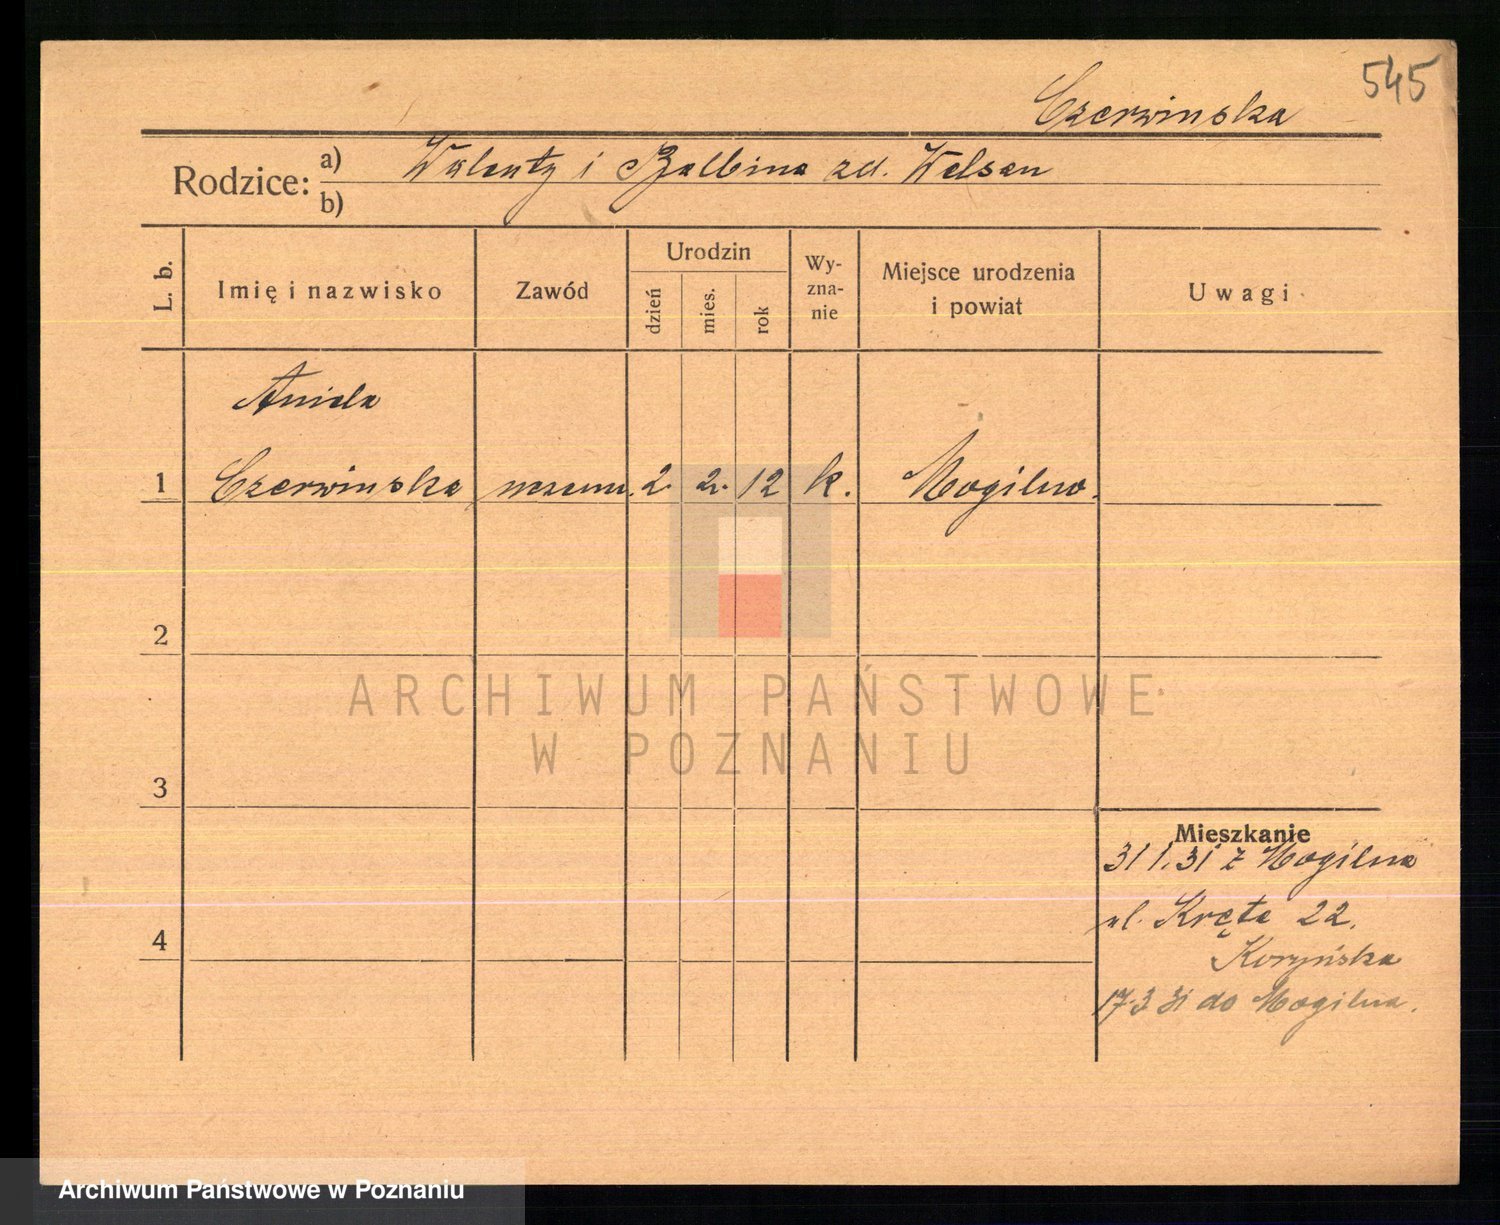 545
Czerwinska
Rodzice: a) Walenty i Balbina zd. Welsan
b)
L. b. Imię i nazwisko Zawód Urodzin dzień mies. rok Wy-zna-nie Miejsce urodzenia i powiat Uwagi
Aniela
1 Czerwinska 2. 2. 12 k. Mogilno.
2
ARCHIWUM PAŃSTWOWE
W POZNANIU
3
Mieszkanie
31 1. 31 z Mogilna
ul. Kręta 22.
4
17.3 31 do Mogilna.
Archiwum Państwowe w Poznaniu